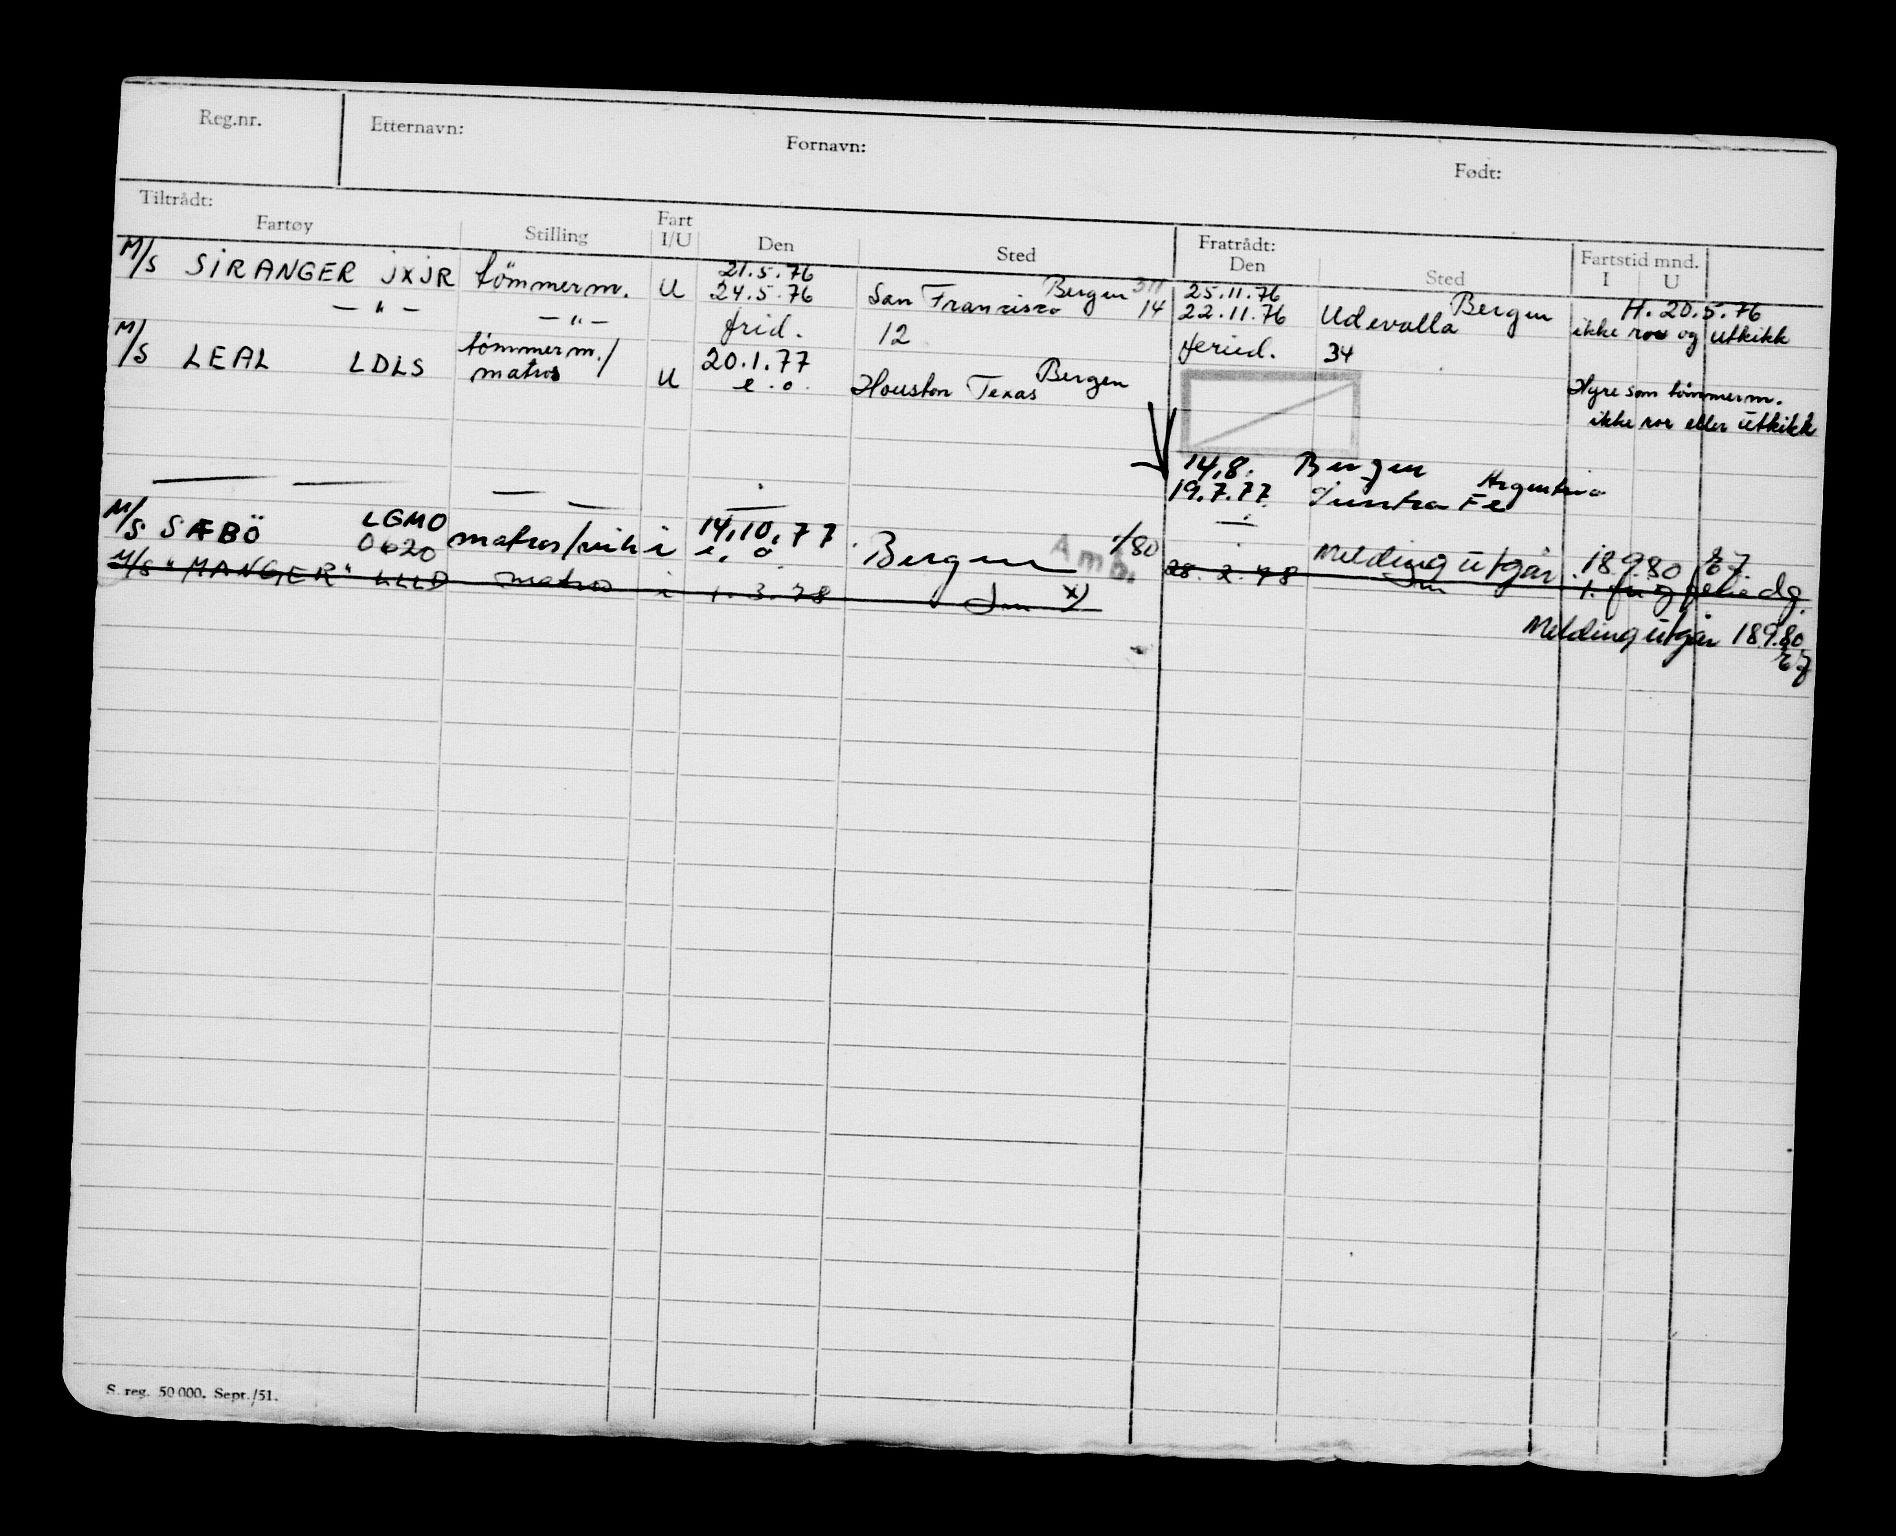 Reg.nr. Etternavn: Fornavn: Født:
Tiltrådt: Fratrådt:
Fartøy Stilling Fart I/U Den Sted Den Sted Fartstid mnd. I U
M/S SIRANGER JXJR tömmerm. U 21.5.76 Bergen 25.11.76 Bergen H. 20.5.76
24.5.76 San Francisco 14 22.11.76 Udevalla ikke ror og utkikk
— " — — " — frid. 12 feried. 34
M/S LEAL LDLS tömmerm./ matros U 20.1.77 Bergen
e.o. Houston Texas Hyre som tömmerm.
ikke ror eller utkikk
14.8. Bergen
19.7.77 Fe Argentina
M/S SÆBÖ LGMO matros/ i 14.10.77 Bergen 1/80 Melding utgår 18.9.80 EJ
0620 e. o. Amb.
M/S "MANGER" LLLD matros i 1.3.78 x) 28.2.78
Melding utgår 18.9.80
EJ
S. reg. 50 000. Sept./51.